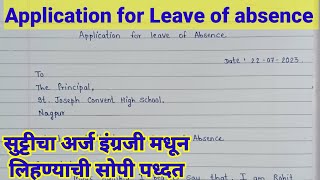 Application for Leave of absence
Application for leave of Absence.
Date: 22-07-2023.
To
The Principal,
St. Joseph Convent High School,
Nagpur
Absence.
सुट्टीचा अर्ज इंग्रजी मधून
लिहण्याची सोपी पध्दत
say that, I am Rohit